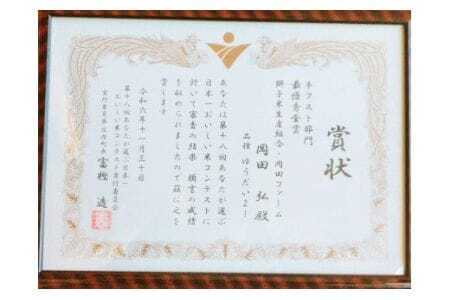 賞状
本フスト部門
最優秀金賞
獅子米生産組合 岡田ファーム
岡田 弘 殿
品種 ゆうだい21
あなたは第十八回あなたが選ぶ
日本一おいしい米コンテストに
於いて審査の結果 頭書の成績
を収められましたので茲に之を
賞します
令和六年十一月三十日
第十八回あなたが選ぶ日本一
おいしい米コンテスト実行委員会
実行委員長庄内町長 富樫 透